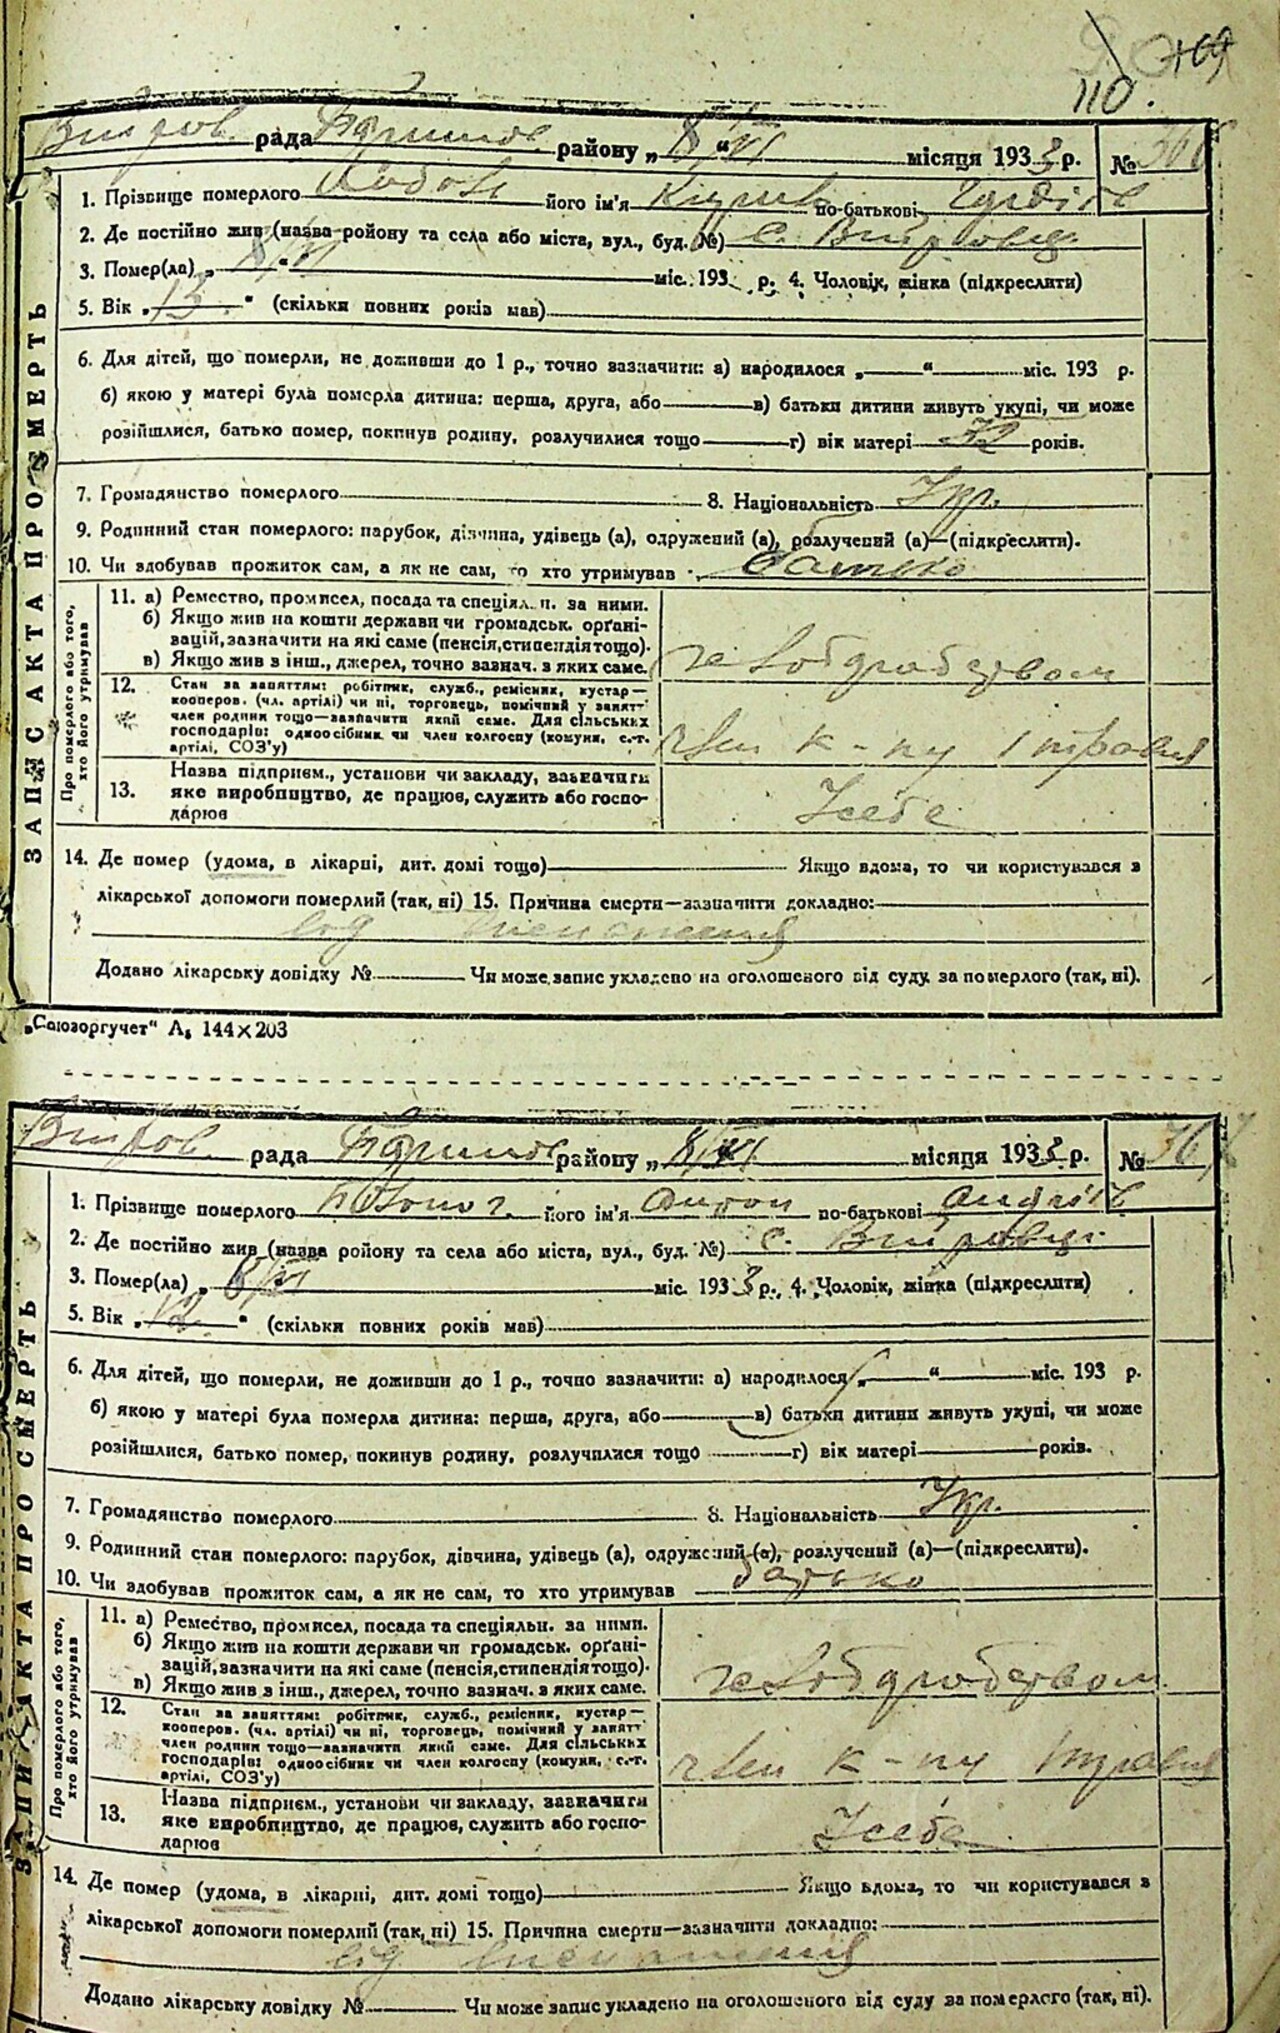 110.
рада району „ “ місяця 1933 р. №
ЗАПИС АКТА ПРО СМЕРТЬ
1. Прізвище померлого його ім'я по-батькові
2. Де постійно жив (назва району та села або міста, вул., буд. №) с.
3. Помер(ла) „ 8/VI “ міс. 193 р. 4. Чоловік, жінка (підкреслити)
5. Вік „ 13 “ (скільки повних років мав)
6. Для дітей, що померли, не доживши до 1 р., точно зазначити: а) народилося „ “ міс. 193 р.
б) якою у матері була померла дитина: перша, друга, або в) батьки дитини живуть укупі, чи може
розійшлися, батько помер, покинув родину, розлучилися тощо г) вік матері років.
7. Громадянство померлого 8. Національність Укр.
9. Родинний стан померлого: парубок, дівчина, удівець (а), одружений (а), розлучений (а)—(підкреслити).
10. Чи здобував прожиток сам, а як не сам, то хто утримував батько
Про померлого або того, хто його утримував
11. а) Ремество, промисел, посада та спеціял. п. за ними.
б) Якщо жив на кошти держави чи громадськ. орґані-
зацій, зазначити на які саме (пенсія, стипендія тощо).
в) Якщо жив з інш., джерел, точно зазнач. з яких саме.
хліборобством
12. Стан за заняттям: робітник, служб., ремісник, кустар—
кооперов. (чл. артілі) чи ні, торговець, помічний у занятт
член родини тощо—зазначити який саме. Для сільських
господарів: одноосібник чи член колгоспу (комуни, с.-г.
артілі, СОЗ'у)
член к-пу 1 травня
13. Назва підприєм., установи чи закладу, зазначити
яке виробництво, де працює, служить або госпо-
дарює
У себе
14. Де помер (удома, в лікарні, дит. домі тощо) Якщо вдома, то чи користувався з
лікарської допомоги померлий (так, ні) 15. Причина смерти—зазначити докладно:
від виснаження
Додано лікарську довідку № Чи може запис укладено на оголошеного від суду за померлого (так, ні).
„Союзоргучет“ А₅ 144×203
рада району „ “ місяця 1933 р. № 367
ЗАПИС АКТА ПРО СМЕРТЬ
1. Прізвище померлого його ім'я Антон по-батькові Андрійов
2. Де постійно жив (назва району та села або міста, вул., буд. №) с.
3. Помер(ла) „ 8/VI міс. 1933 р., 4. Чоловік, жінка (підкреслити)
5. Вік „ 12 “ (скільки повних років мав)
6. Для дітей, що померли, не доживши до 1 р., точно зазначити: а) народилося „ “ міс. 193 р.
б) якою у матері була померла дитина: перша, друга, або в) батьки дитини живуть укупі, чи може
розійшлися, батько помер, покинув родину, розлучилися тощо г) вік матері років.
7. Громадянство померлого 8. Національність Укр.
9. Родинний стан померлого: парубок, дівчина, удівець (а), одружений (а), розлучений (а)—(підкреслити).
10. Чи здобував прожиток сам, а як не сам, то хто утримував батько
Про померлого або того, хто його утримував
11. а) Ремество, промисел, посада та спеціяльн. за ними.
б) Якщо жив на кошти держави чи громадськ. орґані-
зацій, зазначити на які саме (пенсія, стипендія тощо).
в) Якщо жив з інш., джерел, точно зазнач. з яких саме.
хліборобством
12. Стан за заняттям: робітник, служб., ремісник, кустар—
кооперов. (чл. артілі) чи ні, торговець, помічний у занятт
член родини тощо—зазначити який саме. Для сільських
господарів: одноосібник чи член колгоспу (комуни, с.-г.
артілі, СОЗ'у)
член к-пу 1 травня
13. Назва підприєм., установи чи закладу, зазначити
яке виробництво, де працює, служить або госпо-
дарює
У себе
14. Де помер (удома, в лікарні, дит. домі тощо) Якщо вдома, то чи користувався з
лікарської допомоги померлий (так, ні) 15. Причина смерти—зазначити докладно:
від виснаження
Додано лікарську довідку № Чи може запис укладено на оголошеного від суду за померлого (так, ні).